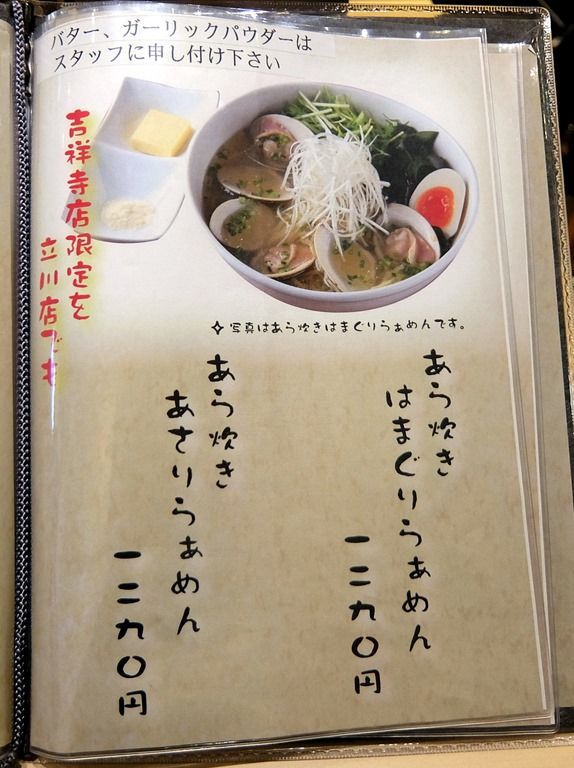 バター、ガーリックパウダーは
スタッフに申し付け下さい
吉祥寺店限定を
立川店でも
✧写真はあら炊きはまぐりらぁめんです。
あら炊き
はまぐりらぁめん
一二九〇円
あら炊き
あさりらぁめん
一二九〇円